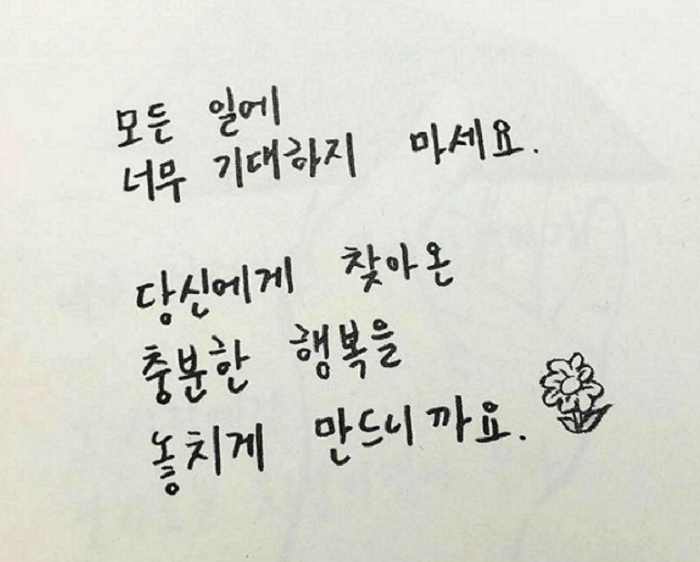 모든 일에
너무 기대하지 마세요.
당신에게 찾아온
충분한 행복을
놓치게 만드니까요.